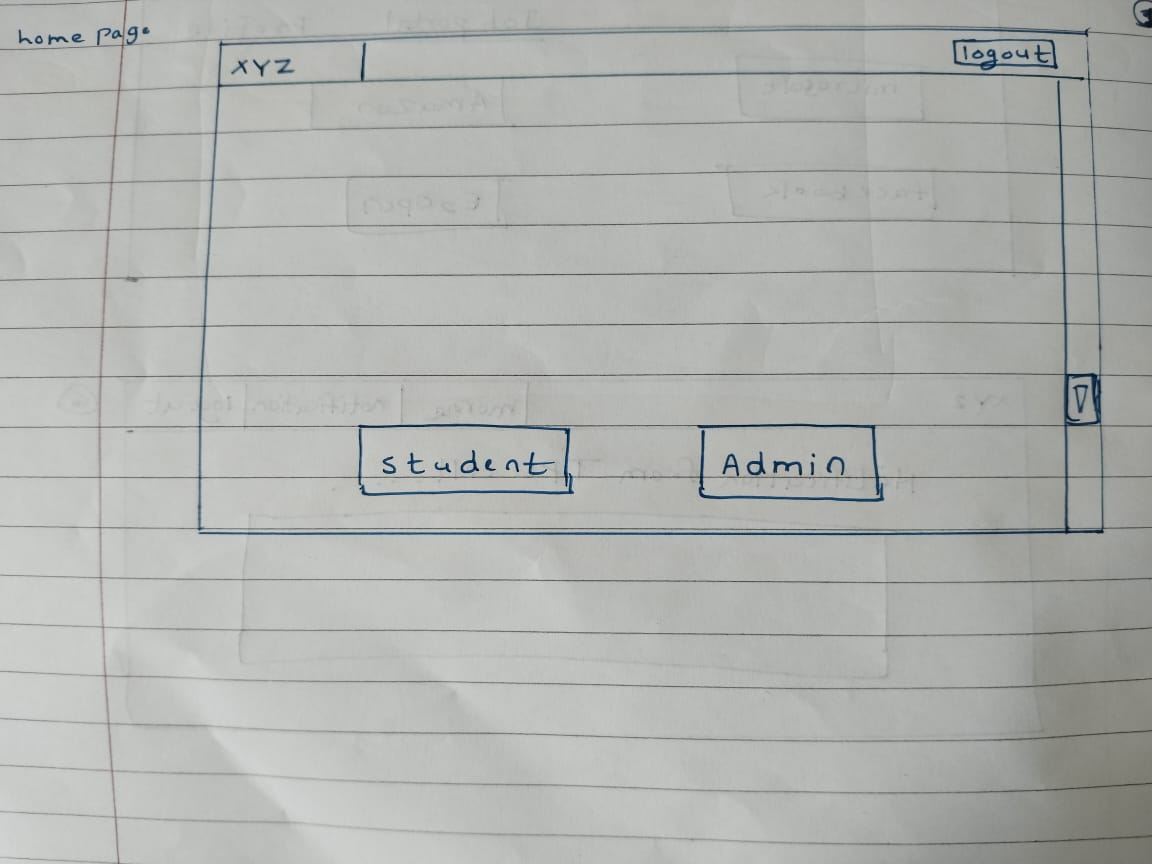 home page
XYZ
logout
student
Admin